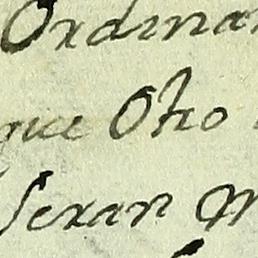 Ordinar
que Otro
seran m